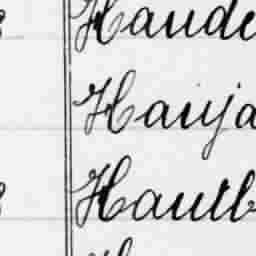 Haude
Hauja
Hautb